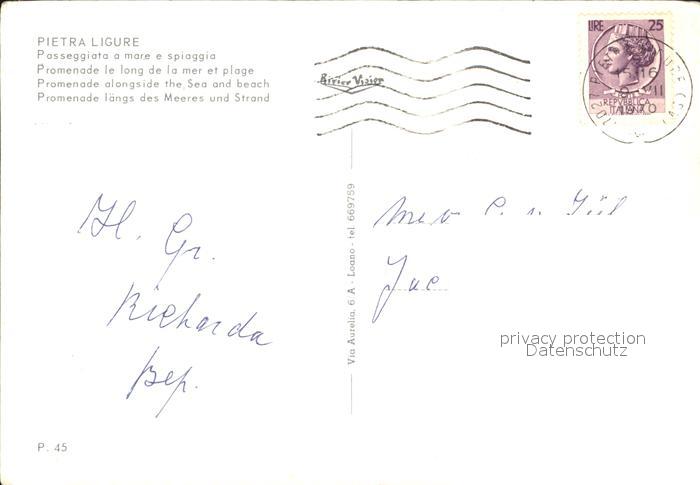 PIETRA LIGURE
Passeggiata a mare e spiaggia
Promenade le long de la mer et plage
Promenade alongside the Sea and beach
Promenade längs des Meeres und Strand
LIRE 25
REPVBBLICA
ITALIANA
16
VII
1970
Via Aurelia, 6 A - Loano - tel. 669789
H. Gr.
Richarda
Bep.
privacy protection
Datenschutz
P. 45